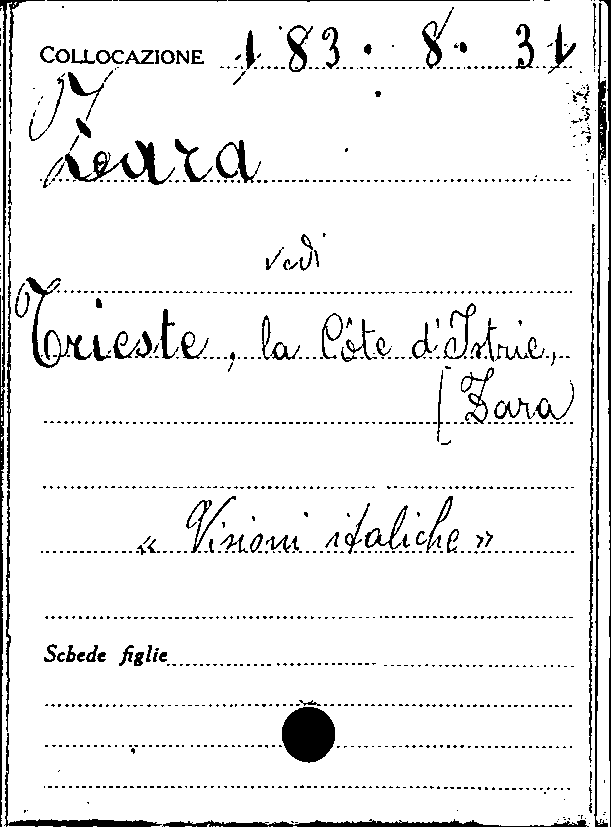 COLLOCAZIONE 183. 8. 31
Zara
vedi
Trieste, la Côte d'Istrie,
[Zara
« Visioni italiche »
Schede figlie